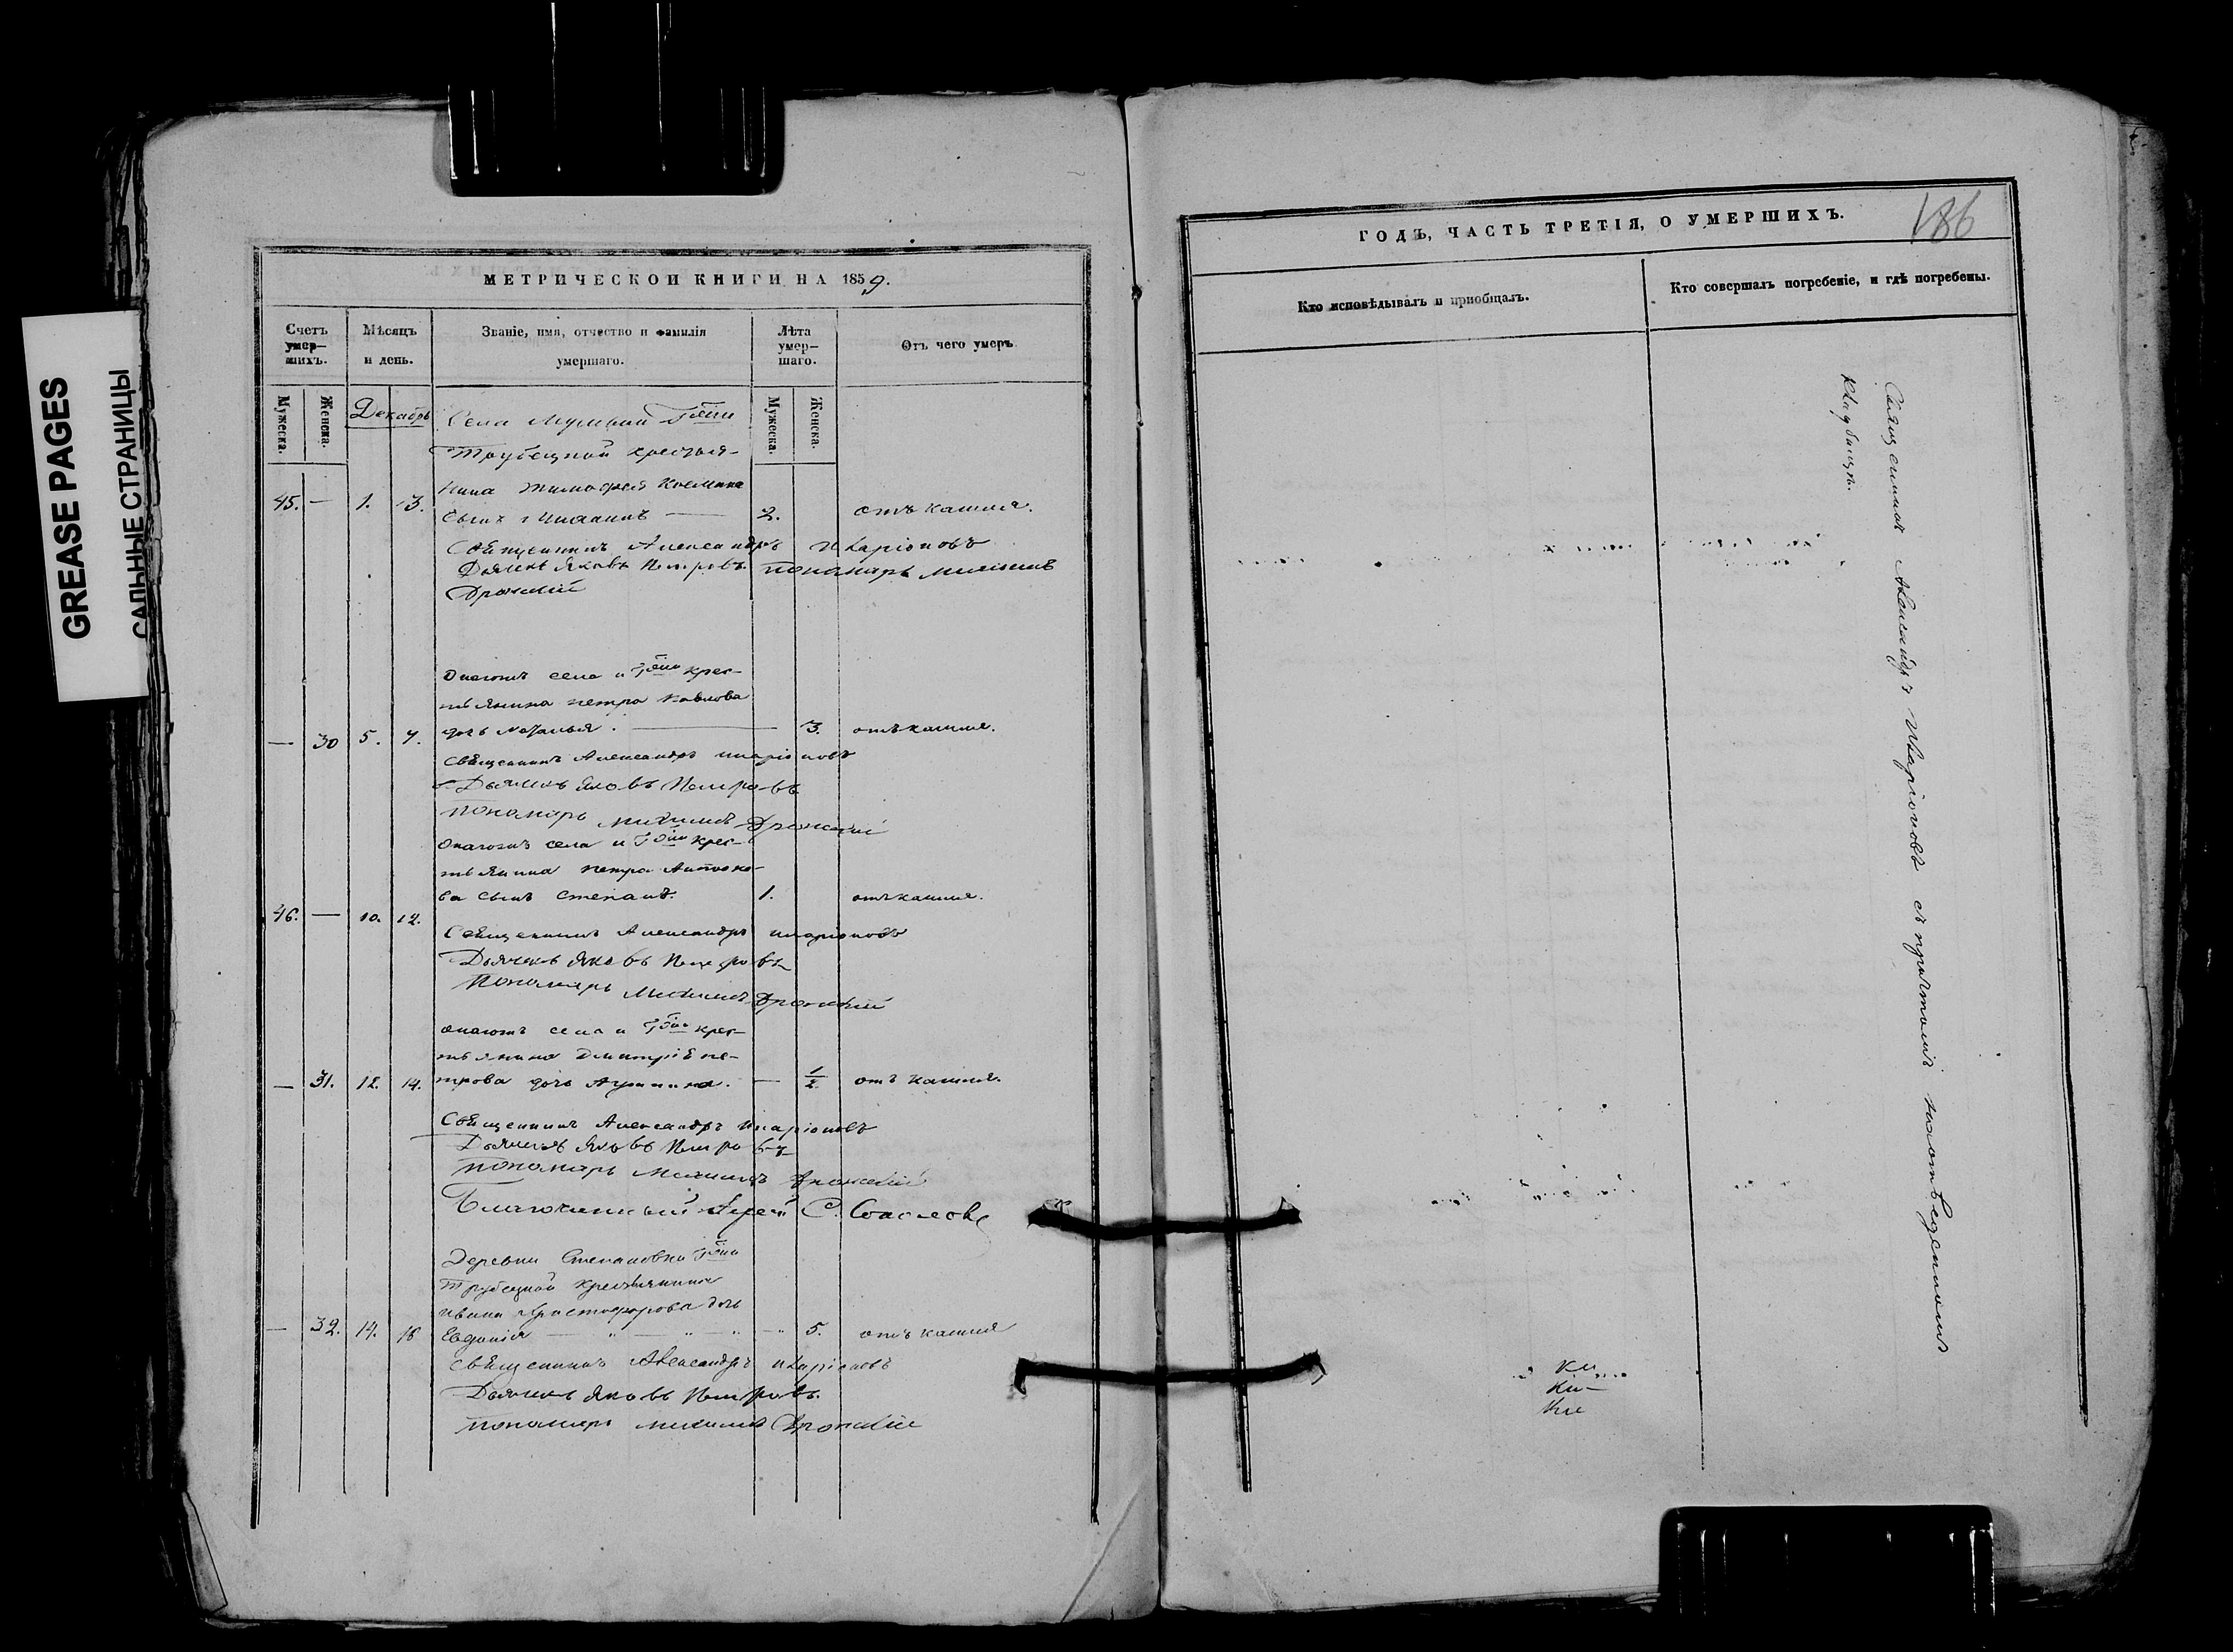 GREASE PAGES
САЛЬНЫЕ СТРАНИЦЫ
МЕТРИЧЕСКОЙ КНИГИ НА 1859.
Счетъ умер-шихъ.
Мужеска.
Женска.
Мѣсяцъ и день.
Званіе, имя, отчество и фамилія умершаго.
Лѣта умер-шаго.
Мужеска.
Женска.
Отъ чего умеръ
Декабрь
Села
Трубецкой крестья-
нина Тимофея
45. — 1. 13. сынъ — 2. отъ кашля.
Священникъ Александръ Иларіоновъ
Дьячекъ Яковъ Петровъ пономарь Михаилъ
Онагожъ села и Гжи крес-
тьянина Петра Павлова
— 30 5. 7. дочь Наталья. — 3. отъ кашля.
Священникъ Александръ Иларіоновъ
Дьячекъ Яковъ Петровъ
пономарь Михаилъ
Онагожъ села и Гжи крес-
тьянина Петра Антоно-
ва сынъ Степанъ. 1. отъ кашля.
46. — 10. 12.
Священникъ Александръ Иларіоновъ
Дьячекъ Яковъ Петровъ
Пономарь Михаилъ
Онагожъ села и Гжи крес-
тьянина Дмитрія Пе-
— 31. 12. 14. трова дочь — 1/2 отъ кашля.
Священникъ Александръ Иларіоновъ
Дьячекъ Яковъ Петровъ
пономарь Михаилъ
Благочинный Іерей С.
Деревни Степановки Гжи
Трубецкой крестьянина
Ивана Христофорова дочь
— 32. 14. 16 Евдокія — 5. отъ кашля
Священникъ Александръ Иларіоновъ
Дьячекъ Яковъ Петровъ.
пономарь Михаилъ
ГОДЪ, ЧАСТЬ ТРЕТІЯ, О УМЕРШИХЪ.
186
Кто исповѣдывалъ и пріобщалъ.
Кто совершалъ погребеніе, и гдѣ погребены.
Священникъ Александръ Иларіоновъ съ причтомъ на отведенномъ
кладбищѣ.